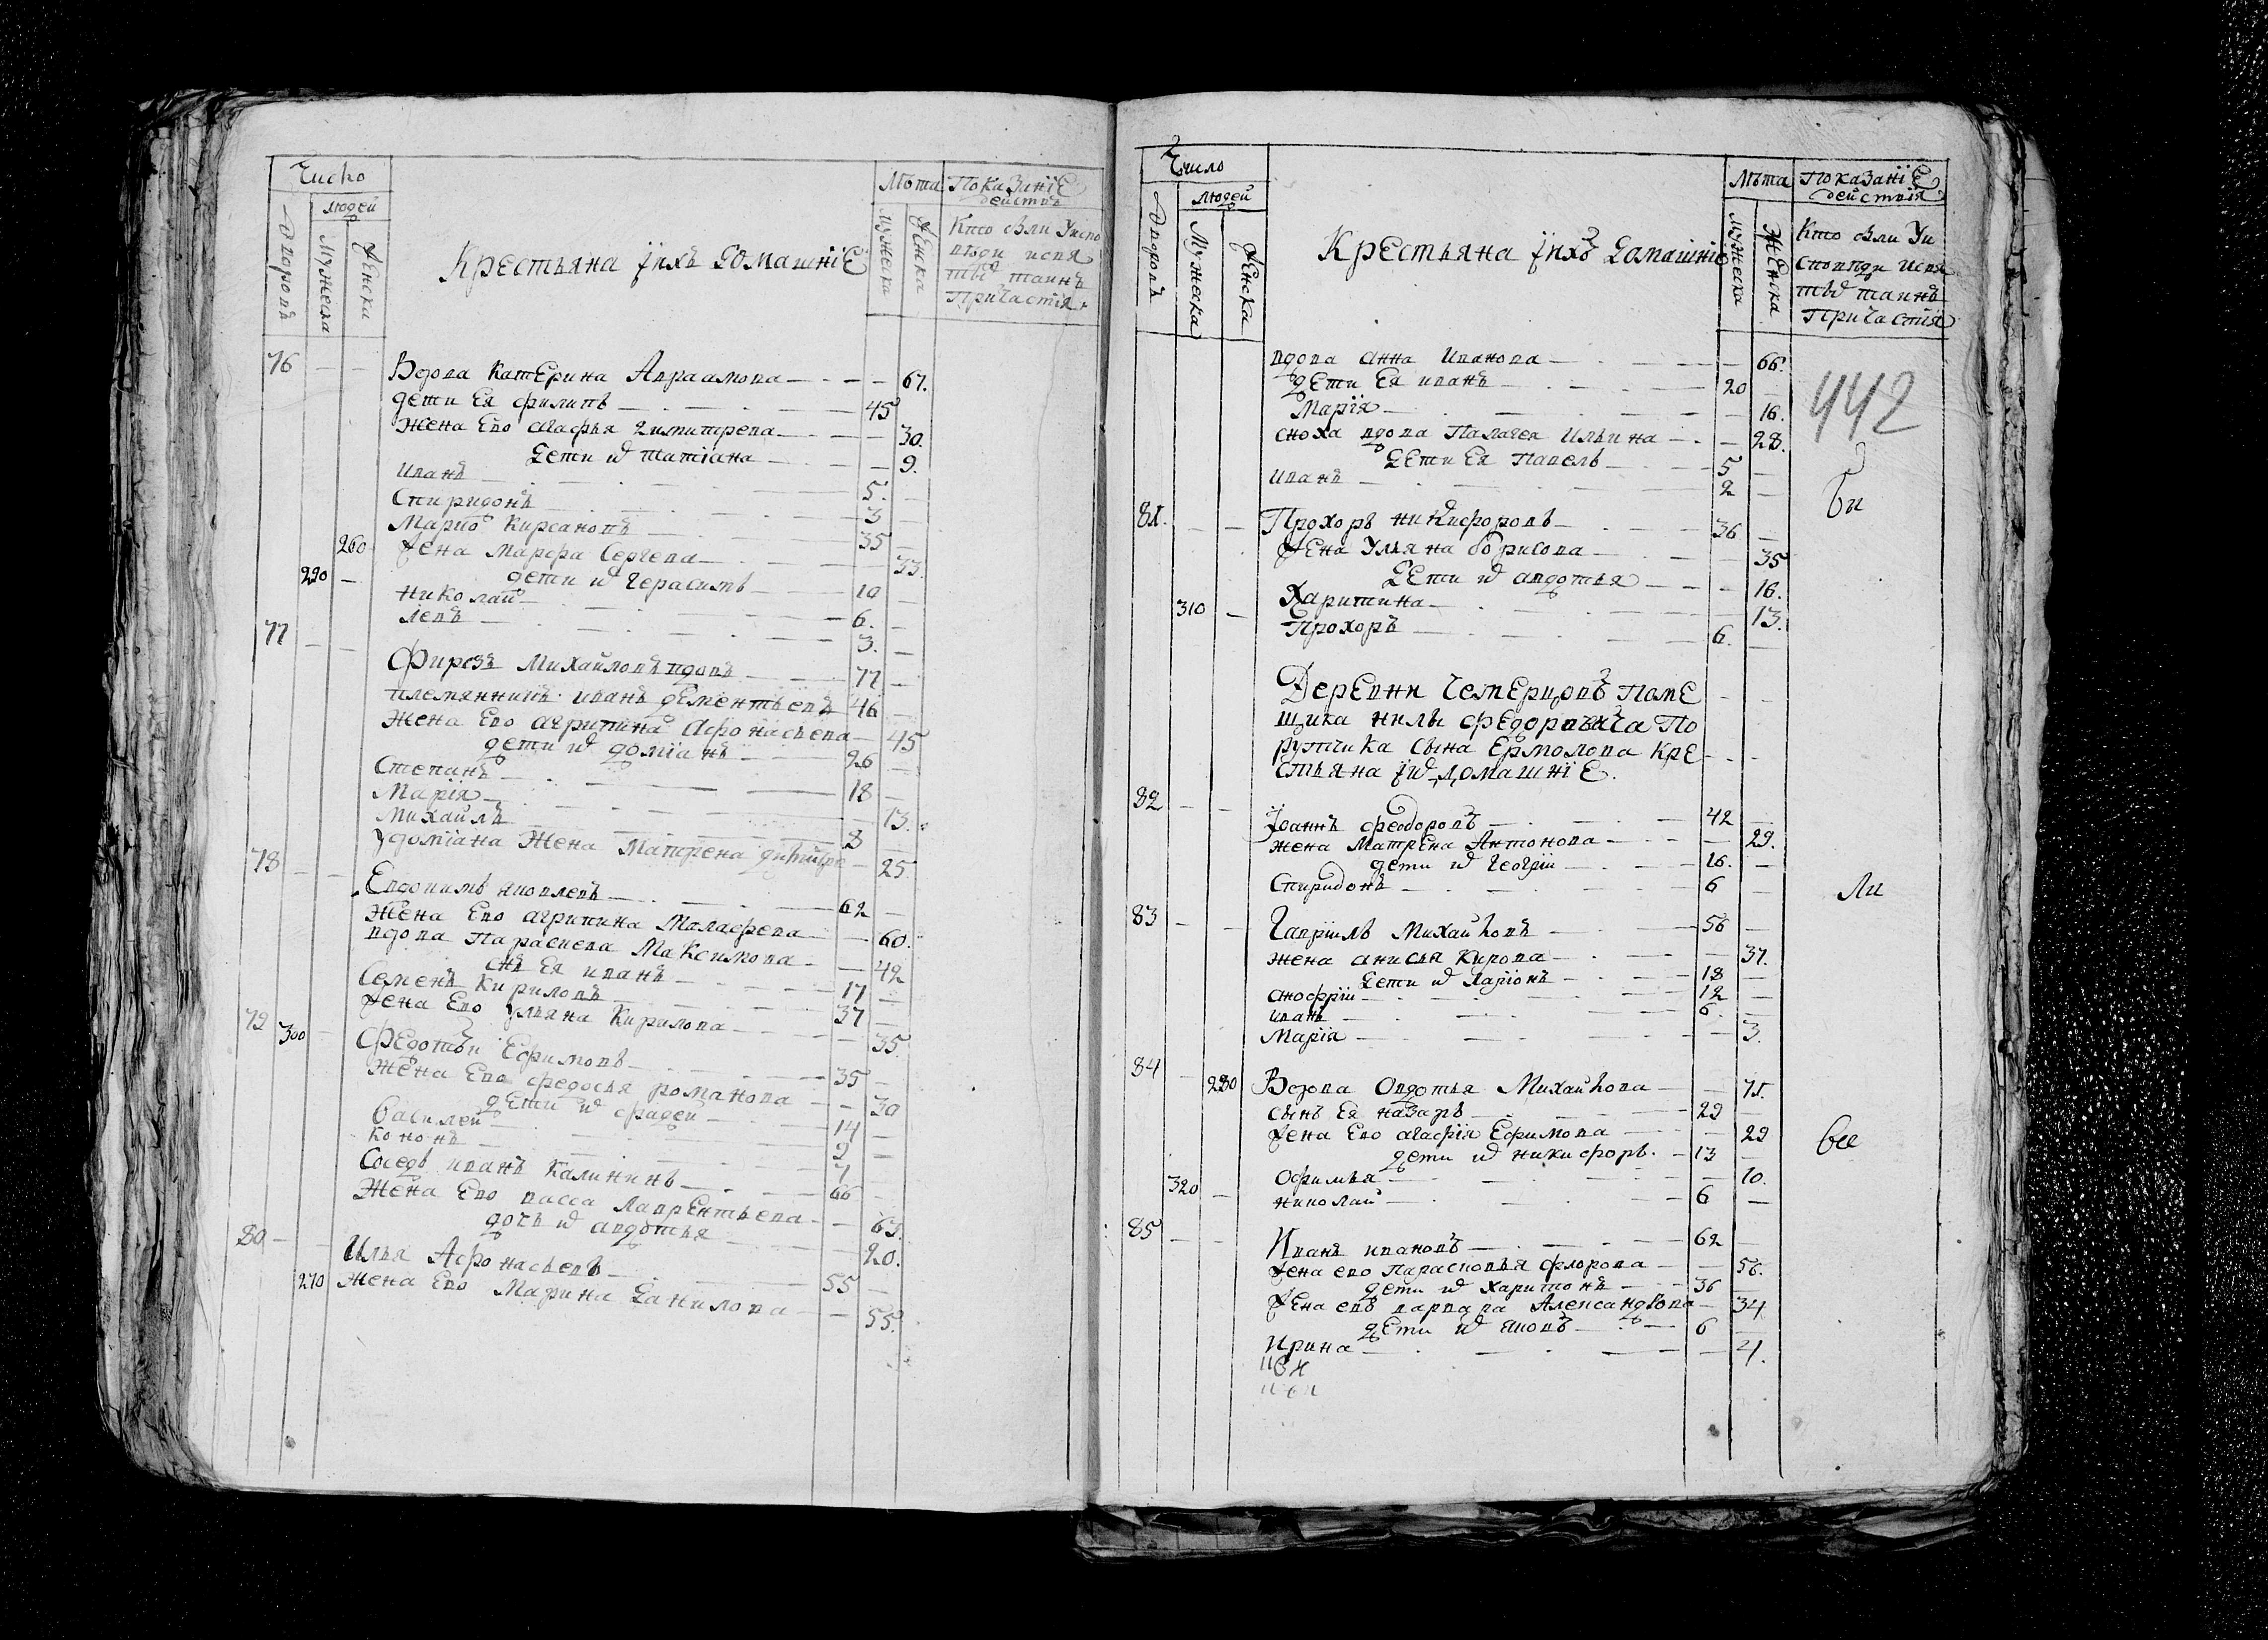 Число
людей
дворовъ
мужеска
женска
Крестьяна їихъ домашнїе
Лѣта
мужеска
женска
Показанїе
действъ
Кто были Уиспо
вѣди исвя
тыⷯ таинъ
Причастїя
76 — — Вдова Катерина Авраамова — — 67.
дети Ея филипъ — 45
Жена Ево агафья димитрева — — 30.
дети иⷯ татїана — — 9.
иванъ — 5. —
Спиридонъ — 3
Марко Кирсановъ — 35 —
260 жена Марфа Сергева — 33.
290 — дети иⷯ герасимъ — 10 —
николай — 6. —
левъ — 3. —
77 — — Фирсъ Михайловъ вдовъ — 77 —
племянникъ иванъ дементьевъ 46 —
Жена Ево агрипина Афонасьева — 45
дети иⷯ домїанъ — 26 —
Степанъ — 18 —
Марїя — 13.
Михайлъ — 8 —
у домїана Жена Матрена димитре — 25.
78 — — Евдокимъ иовлевъ — 62 —
Жена Ево агрипина Малафева — — 60.
вдова Параскева Максимова — — 42
сⷩъ Ея иванъ — 17 —
Семенъ Кириловъ — 37 —
жена Ево ульяна Кирилова — — 35.
79 300 — Федотъ Ефимовъ — 35 —
Жена Ево федосья романова — — 30
дети иⷯ фадей — 14 —
Василей — 9 —
кононъ — 7 —
Соседъ иванъ Калининъ — 66 —
Жена Ево васса Лаврентьева — — 63.
дочь иⷯ авдотья — 20.
80 — — Илья Афонасьевъ — 55 —
270 Жена Ево Марина данилова — — 55.
Число
людей
дворовъ
Мужеска
женска
Крестьяна їихъ домашнїе
Лѣта
мужеска
Женска
Показанїе
действїя
Кто были Уи
споведи исвя
тыⷯ таинъ
Причастїя
442
вдова анна иванова — — 66.
дети Ея иванъ — 20 —
Марїя — — 16.
сноха вдова Палагея ильина — — 28.
дети Ея Павелъ — 5 —
иванъ — 2 —
бы
81. — — Прохоръ никифоровъ — 36 —
жена Ульяна борисова — — 35
дети иⷯ авдотья — — 16.
310 — Харитина — 13.
Прохоръ — 6. —
Деревни Чемерцовъ поме
щика нилы федоровича По
рутчика сына Ермолова кре
стьяна їиⷯ домашнїе.
82 — — Їоаннъ феодоровъ — 42 —
жена Матрена Антонова — — 29.
дети иⷯ георгїи — 16. —
Спиридонъ — 6 —
ли
83 — — Гаврїилъ Михайловъ — 56 —
жена анисья Кирова — — 37.
дети иⷯ ларїонъ — 18 —
анофрїи — 12 —
иванъ — 6. —
Марїа — — 3.
84 — 280 Вдова Овдотья Михайлова — — 75.
сынъ Ея назаръ — 29
жена Ево агафїя Ефимова — — 29
дети иⷯ никифоръ — 13 —
Офимья — — 10.
320 — николай — 6 —
все
85 — — Иванъ ивановъ — 62 —
жена ево Парасковья флорова — — 56.
дети иⷯ харитонъ — 36 —
жена евъ варвара Александрова — 34
дети иⷯ яковъ — 6 —
Ирина — — 4.